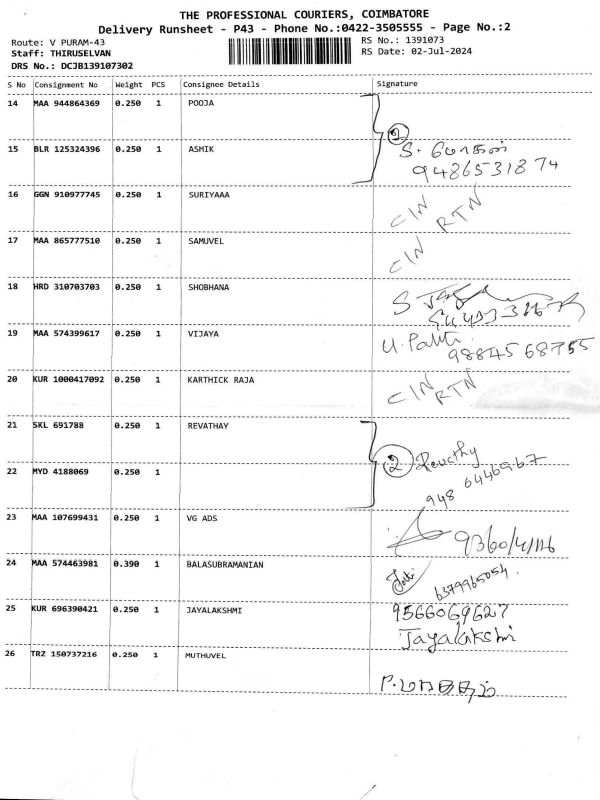 THE PROFESSIONAL COURIERS, COIMBATORE
Delivery Runsheet - P43 - Phone No.:0422-3505555 - Page No.:2
Route: V PURAM-43 RS No.: 1391073
Staff: THIRUSELVAN RS Date: 02-Jul-2024
DRS No.: DCJB139107302
S No Consignment No Weight PCS Consignee Details Signature
14 MAA 944864369 0.250 1 POOJA
②
15 BLR 125324396 0.250 1 ASHIK S.
9486531874
16 GGN 910977745 0.250 1 SURIYAAA CIN RTN
17 MAA 865777510 0.250 1 SAMUVEL CIN
18 HRD 310703703 0.250 1 SHOBHANA S
19 MAA 574399617 0.250 1 VIJAYA U.
9884568755
20 KUR 1000417092 0.250 1 KARTHICK RAJA CIN RTN
21 SKL 691788 0.250 1 REVATHAY
② Revathy
22 MYD 4188069 0.250 1 948 6446967
23 MAA 107699431 0.250 1 VG ADS
24 MAA 574463981 0.390 1 BALASUBRAMANIAN 6379965054
25 KUR 696390421 0.250 1 JAYALAKSHMI 9566069627
Jayalakshmi
26 TRZ 150737216 0.250 1 MUTHUVEL